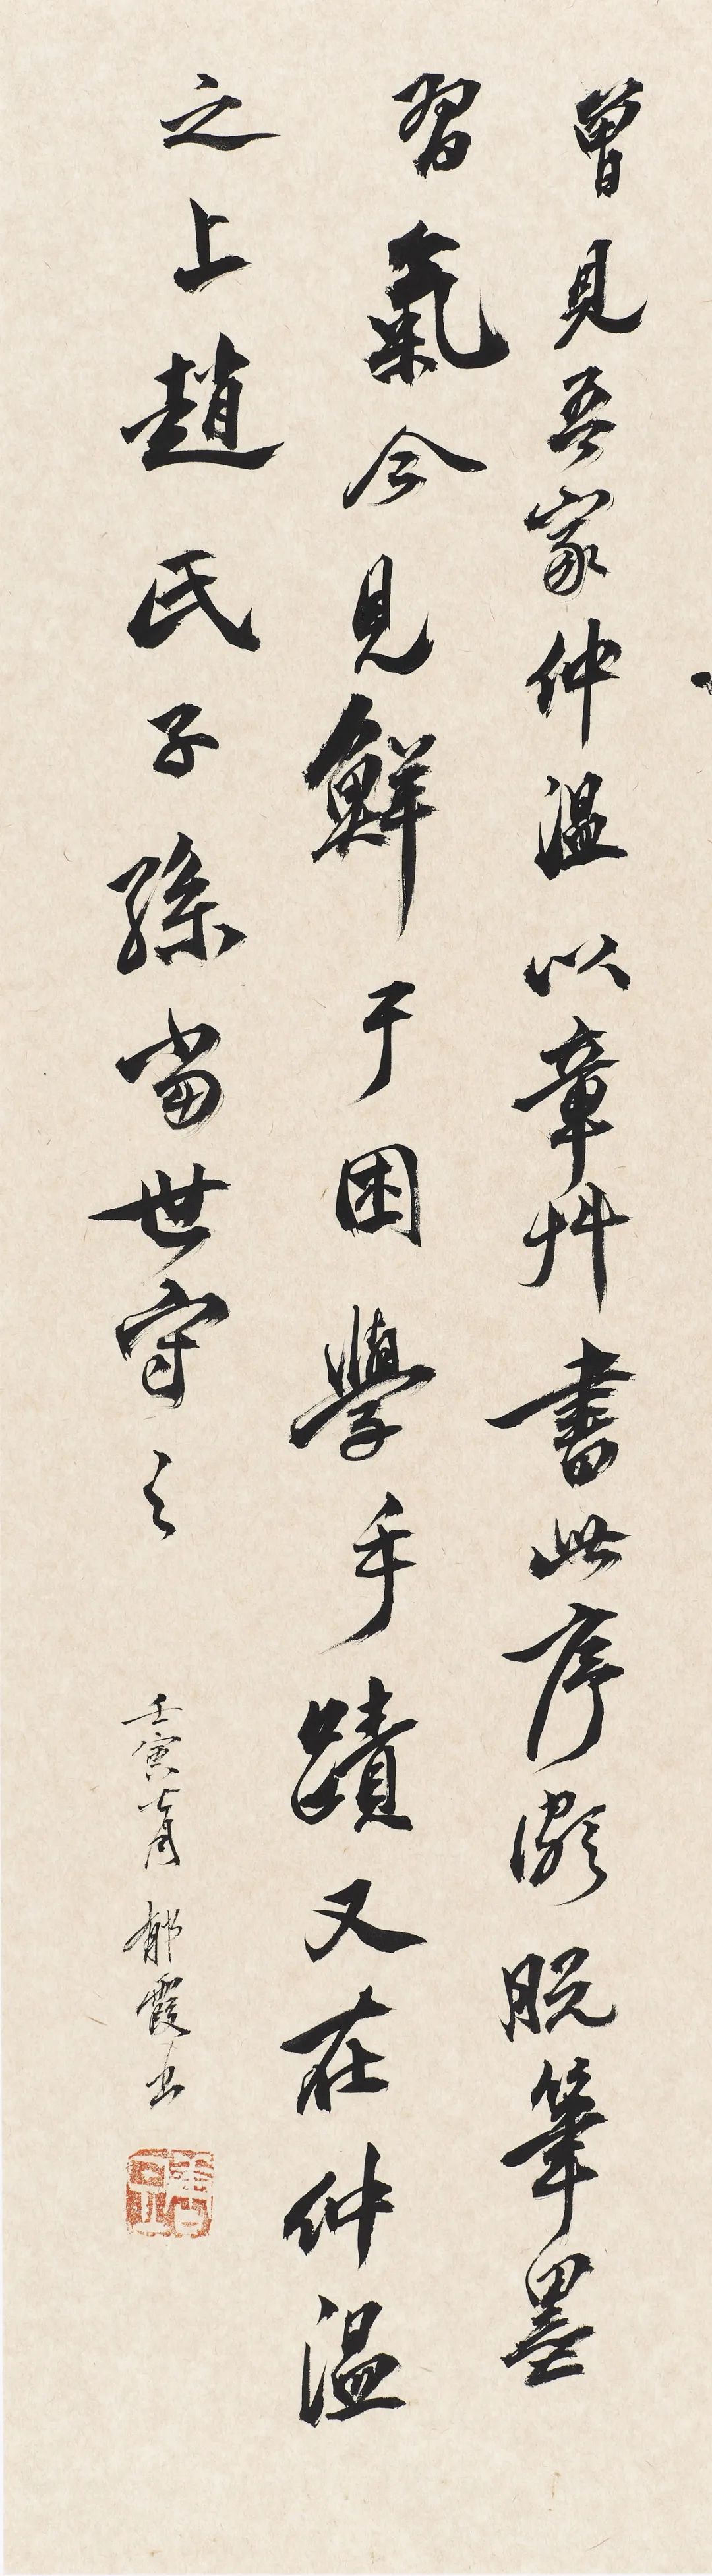 曾見吾家仲溫以章艸書此序頗脫筆墨
習氣今見鮮于困學手蹟又在仲溫
之上趙氏子孫當世守之
壬寅 月郁霞書